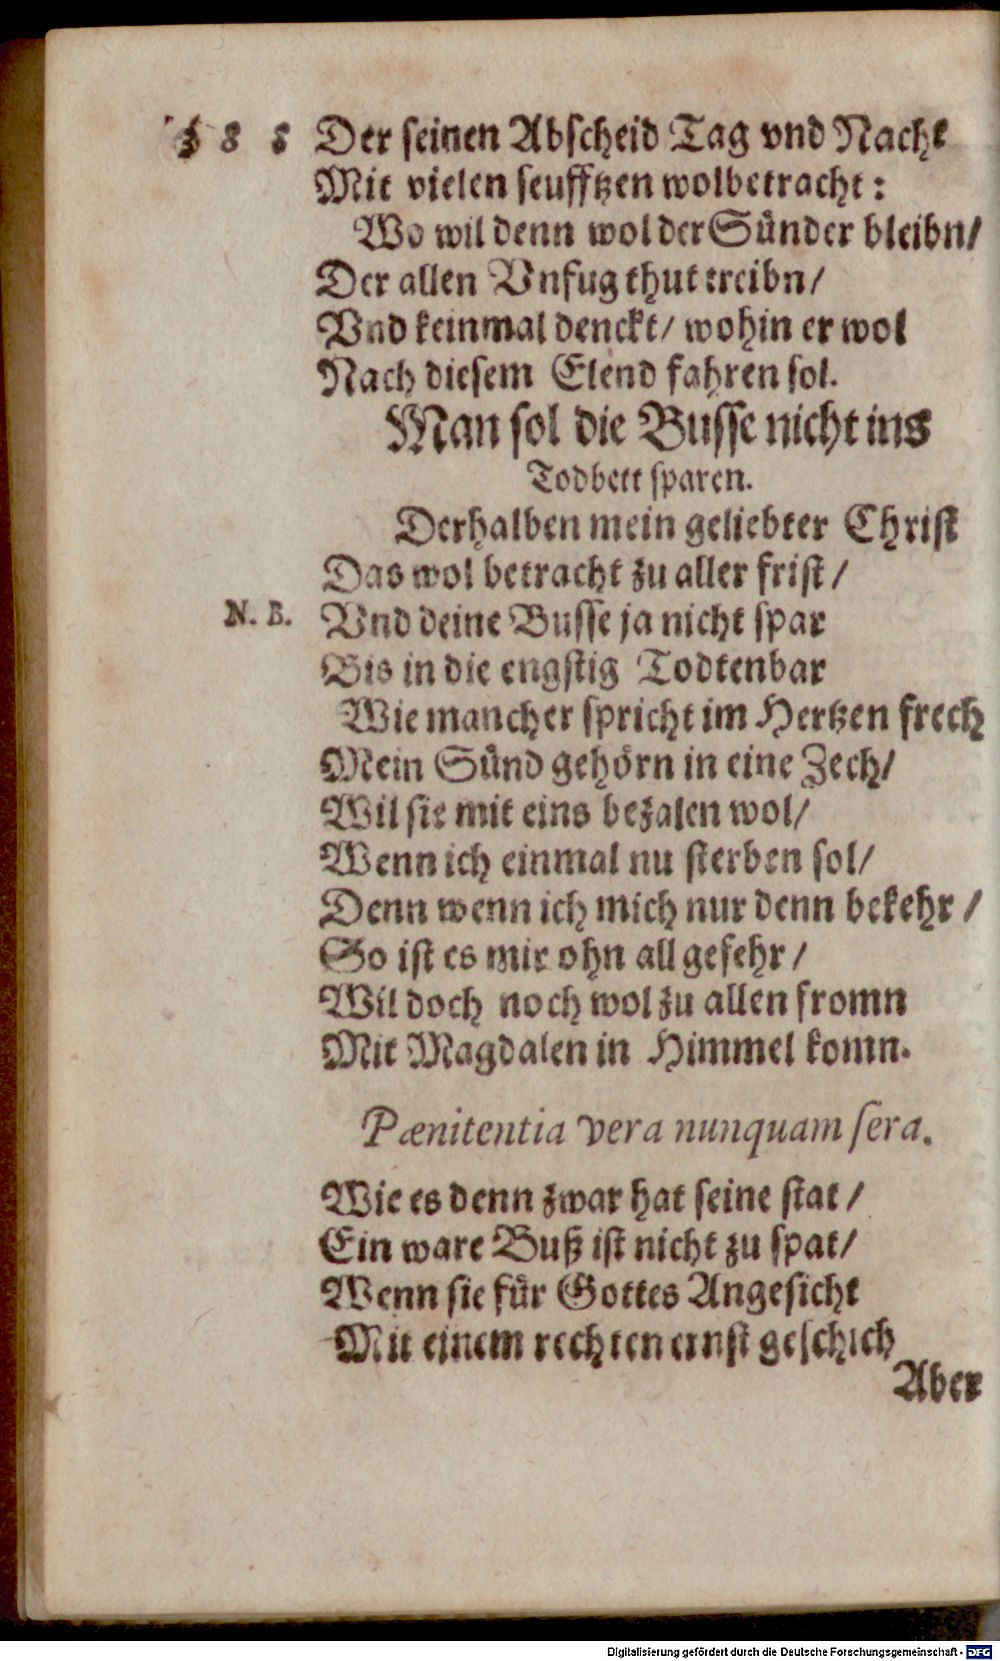 Der seinen Abscheid Tag vnd Nacht
Mit vielen seufftzen wolbetracht:
Wo wil denn wol der Sünder bleibn/
Der allen Vnfug thut treibn/
Vnd keinmal denckt/ wohin er wol
Nach diesem Elend fahren sol.
Man sol die Busse nicht ins
Todbett sparen.
Derhalben mein geliebter Christ
Das wol betracht zu aller frist/
N. B. Vnd deine Busse ja nicht spar
Bis in die engstig Todtenbar
Wie mancher spricht im Hertzen frech
Mein Sünd gehörn in eine Zech/
Wil sie mit eins bezalen wol/
Wenn ich einmal nu sterben sol/
Denn wenn ich mich nur denn bekehr/
So ist es mir ohn all gefehr/
Wil doch noch wol zu allen fromn
Mit Magdalen in Himmel komn.
Pænitentia vera nunquam sera.
Wie es denn zwar hat seine stat/
Ein ware Buß ist nicht zu spat/
Wenn sie für Gottes Angesicht
Mit einem rechten ernst geschich
Aber
Digitalisierung gefördert durch die Deutsche Forschungsgemeinschaft - DFG